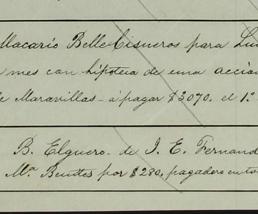 Macario Belle Cisneros para Lui
mes con hipoteca de una accion
de Maravillas - á pagar $3070. el 1º
B. Elguero. de J. E. Fernand
Mª Benites por $280, pagadero en